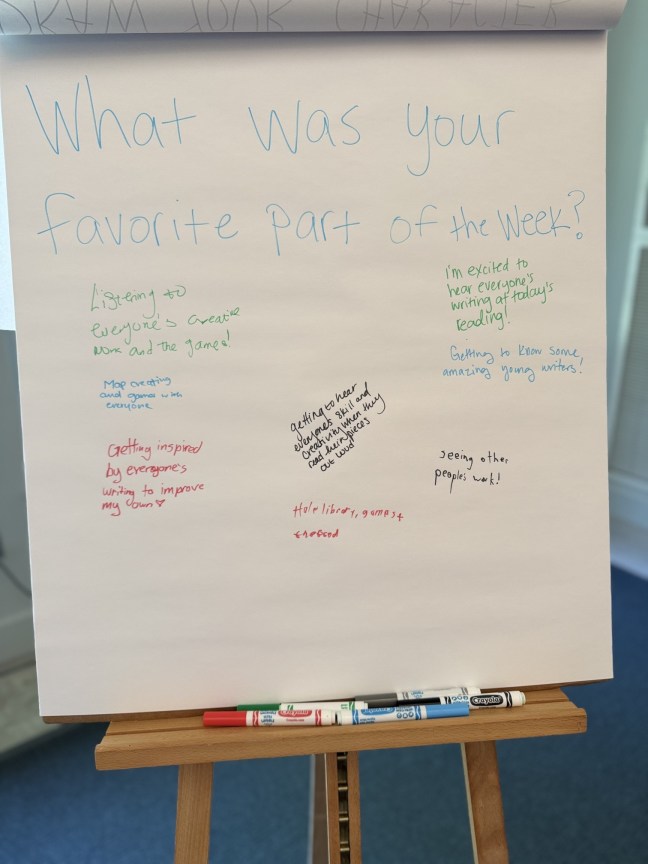 What was your
favorite part of the Week?
Listening to
everyone's creative
work and the games!
Map creating
and games with
everyone
Getting inspired
by everyone's
writing to improve
my own
getting to hear
everyone's skill and
creativity when they
read their pieces
out loud
library, games +
I'm excited to
hear everyone's
writing at today's
reading!
Getting to know some
amazing young writers!
seeing other
people's work!
Crayola
Crayola